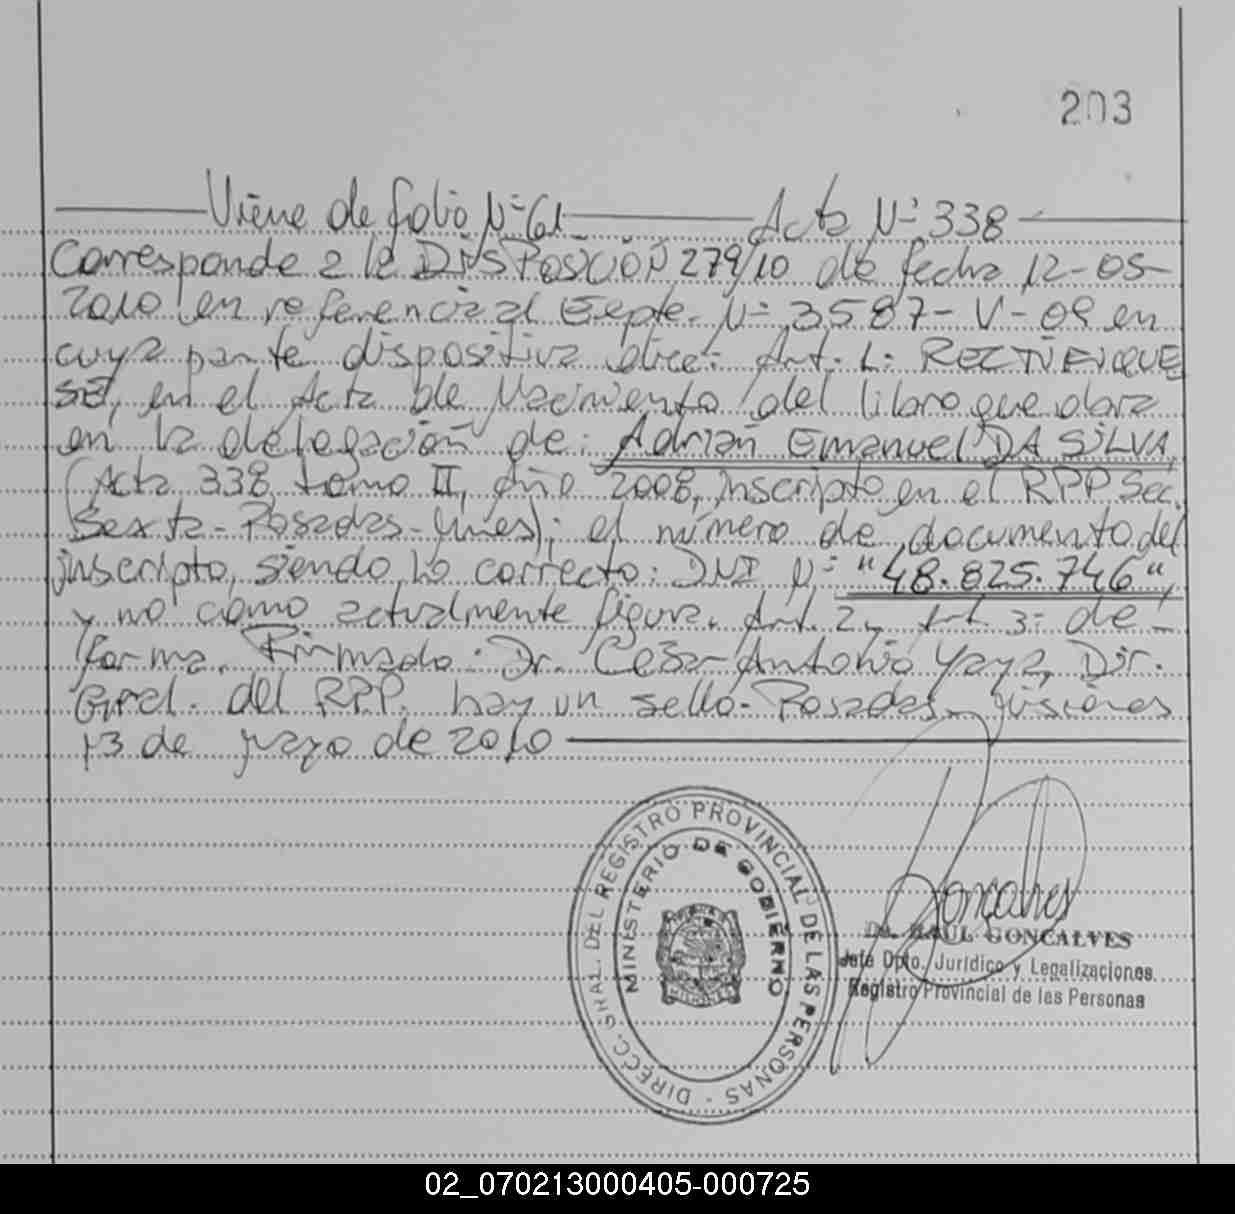 203
Viene de folio Nº 61 Acta Nº 338
Corresponde a la DISPOSICIÓN 279/10 de fecha 12-05-
2010 en referencia al Expte. Nº 3587-V-09 en
cuya parte dispositiva dice: Art. 1: RECTIFIQUE
SE, en el Acta de Nacimiento del libro que obra
en la delegación de: Adrian Emanuel DA SILVA,
(Acta 338, tomo II, año 2008, inscripto en el RPP Sec.
Sexta-Posadas-Mnes); el número de documento del
inscripto, siendo lo correcto: DNI Nº "48.825.746",
y no como actualmente figura. Art. 2, Art. 3= de
forma. Firmado: Dr. Cesar Antonio Yaya, Dir.
Gral. del RPP. hay un sello- Posadas, Misiones
13 de mayo de 2010
DIRECC. GRAL. DEL REGISTRO PROVINCIAL DE LAS PERSONAS -
MINISTERIO DE GOBIERNO
Goncalves
Dr. RAUL GONCALVES
Jefe Dpto. Jurídico y Legalizaciones
Registro Provincial de las Personas
02_070213000405-000725